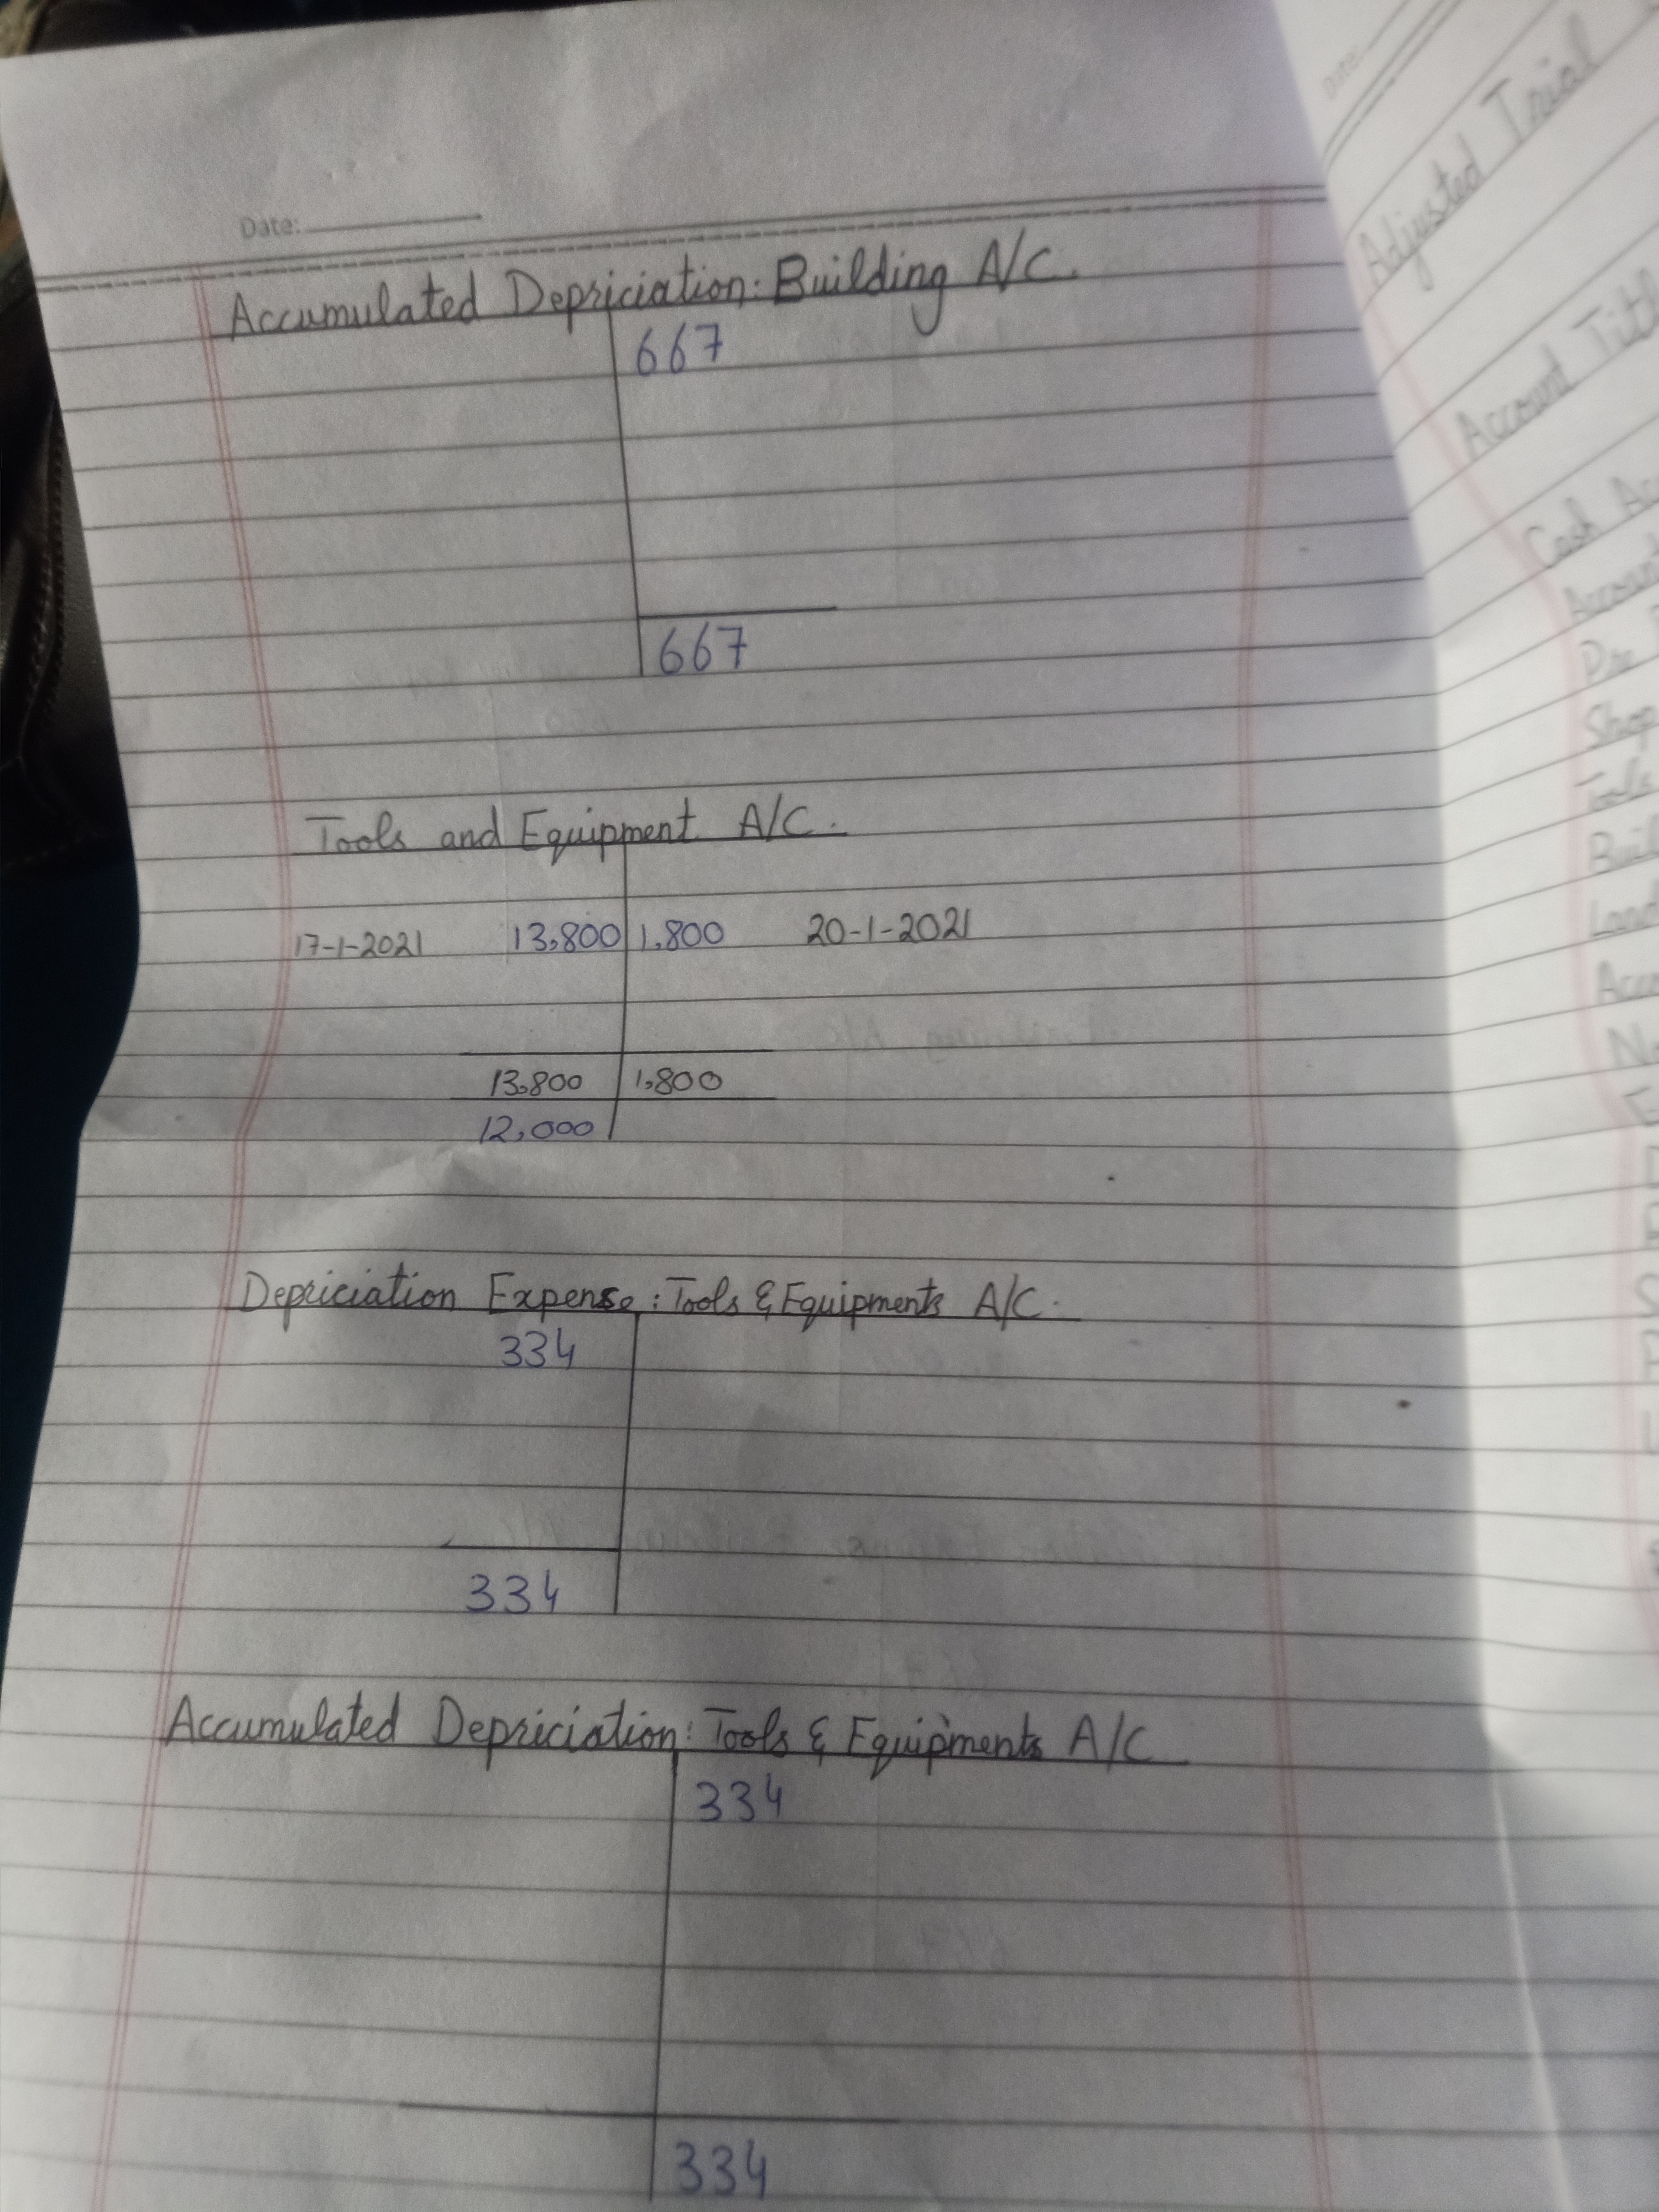 Date:
Accumulated Depriciation: Building A/C.
667
667
Tools and Equipment A/C.
17-1-2021 13,800 1,800 20-1-2021
13,800 1,800
12,000
Depriciation Expense: Tools & Equipments A/C.
334
334
Accumulated Depriciation: Tools & Equipments A/C
334
334
Date:
Adjusted Trial
Account
Cash
Shop
Tools